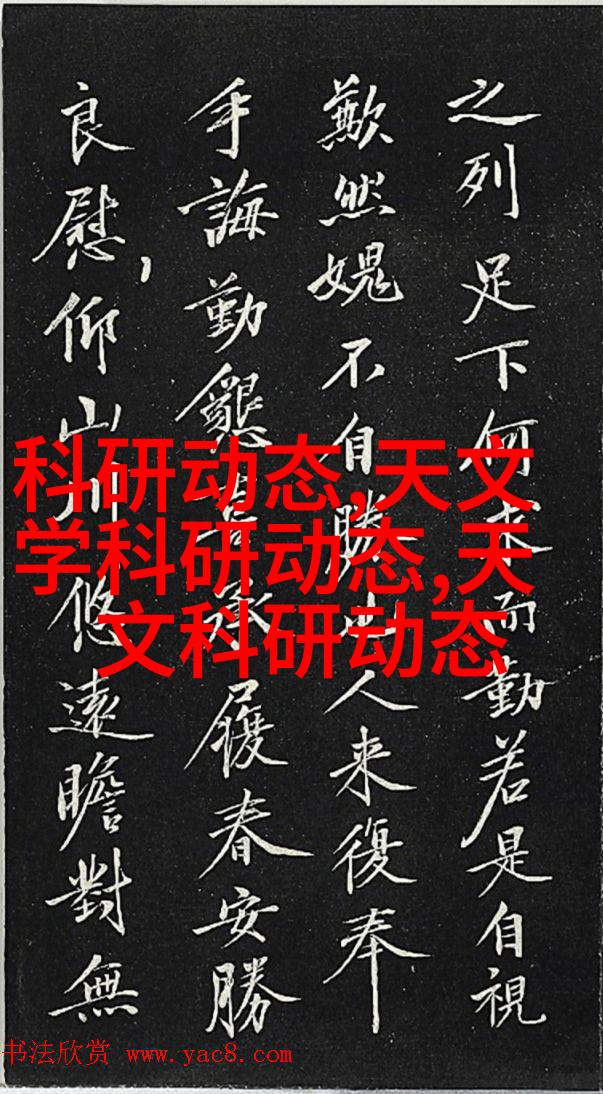 之列足下何求而勤若是自視
歉然媿不自勝人来復奉
手誨勤懇承履春安勝
良慰仰山川悠遠瞻對無
科研动态,天文
学科研动态,天
文科研动态
书法欣赏 www.yac8.com